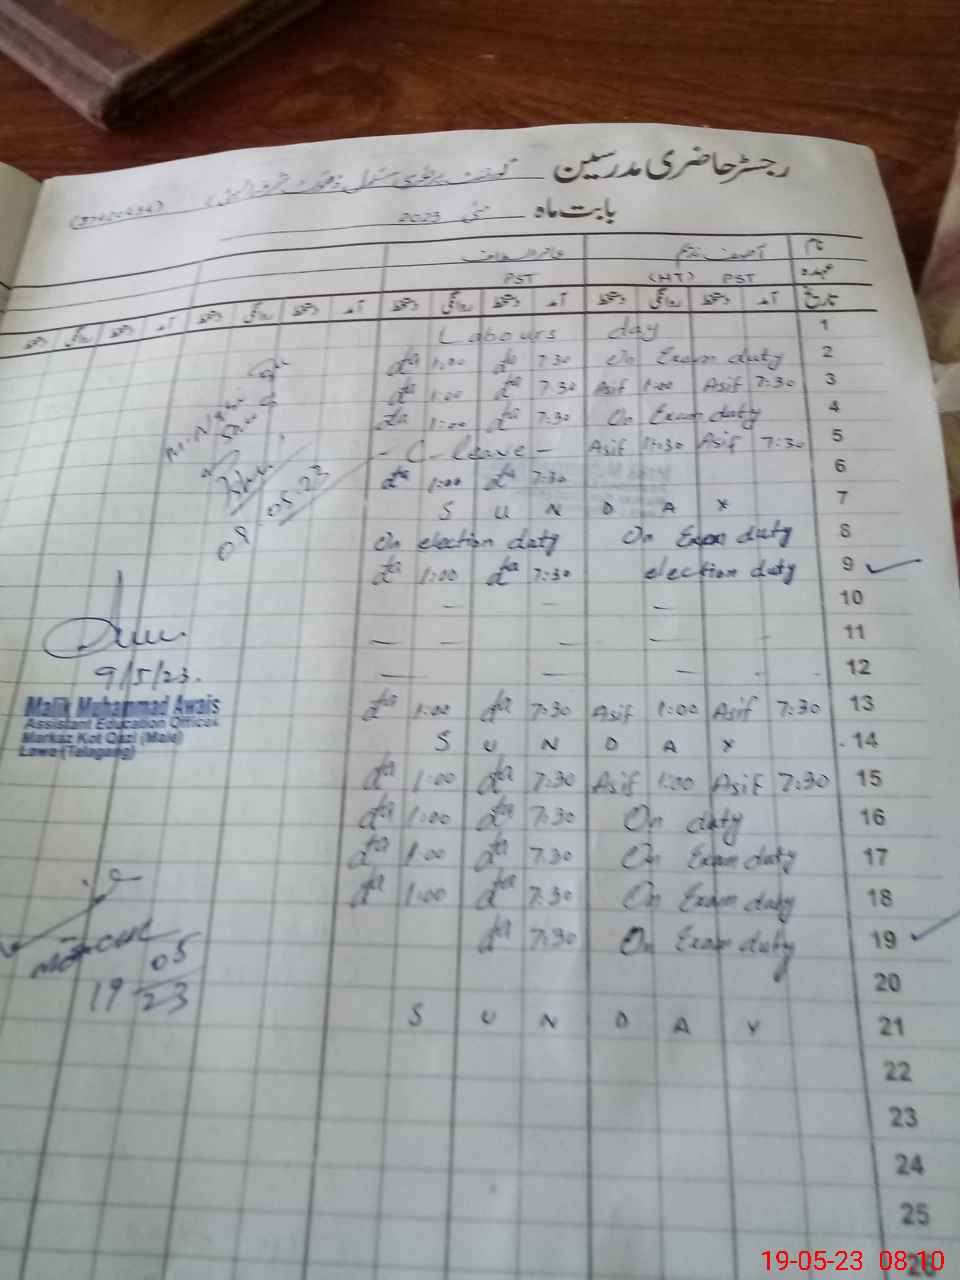 رجسٹر حاضری مدرسین
بابت ماہ مئی 2023
نام
PST (HT) PST عہدہ
دستخط روانگی دستخط آمد دستخط روانگی دستخط آمد دستخط روانگی دستخط آمد دستخط روانگی دستخط آمد تاریخ
Labours day 1
1:00 7:30 On Exam duty 2
1:00 7:30 Asif 1:00 Asif 7:30 3
1:00 7:30 On Exam duty 4
- C-Leave - Asif 11:30 Asif 7:30 5
1:00 7:30 6
S U N D A Y 7
08.05.23
On election duty On Exam duty 8
1:00 7:30 election duty 9
— — — 10
— — — — 11
— — — 12
9/5/23.
Malik Muhammad Awais
Assistant Education Officer
Markaz Kot Qazi (Male)
Lawa (Talagang)
1:00 7:30 Asif 1:00 Asif 7:30 13
S U N D A Y 14
1:00 7:30 Asif 1:00 Asif 7:30 15
1:00 7:30 On duty 16
1:00 7:30 On Exam duty 17
1:00 7:30 On Exam duty 18
7:30 On Exam duty 19
19 05 23
20
S U N D A Y 21
22
23
24
25
26
19-05-23 08:10